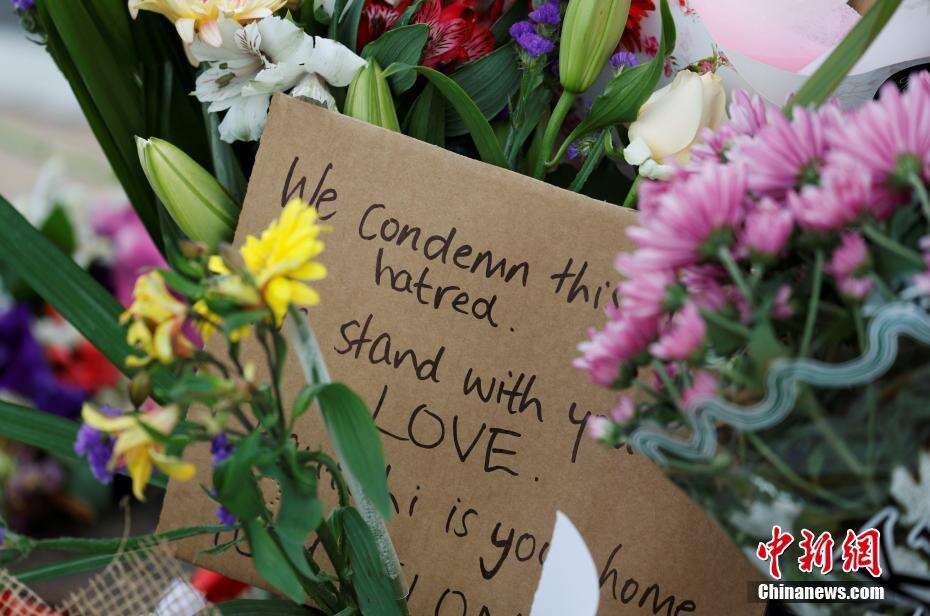 We condemn this
hatred.
stand with
LOVE.
is your home
中新网
Chinanews.com